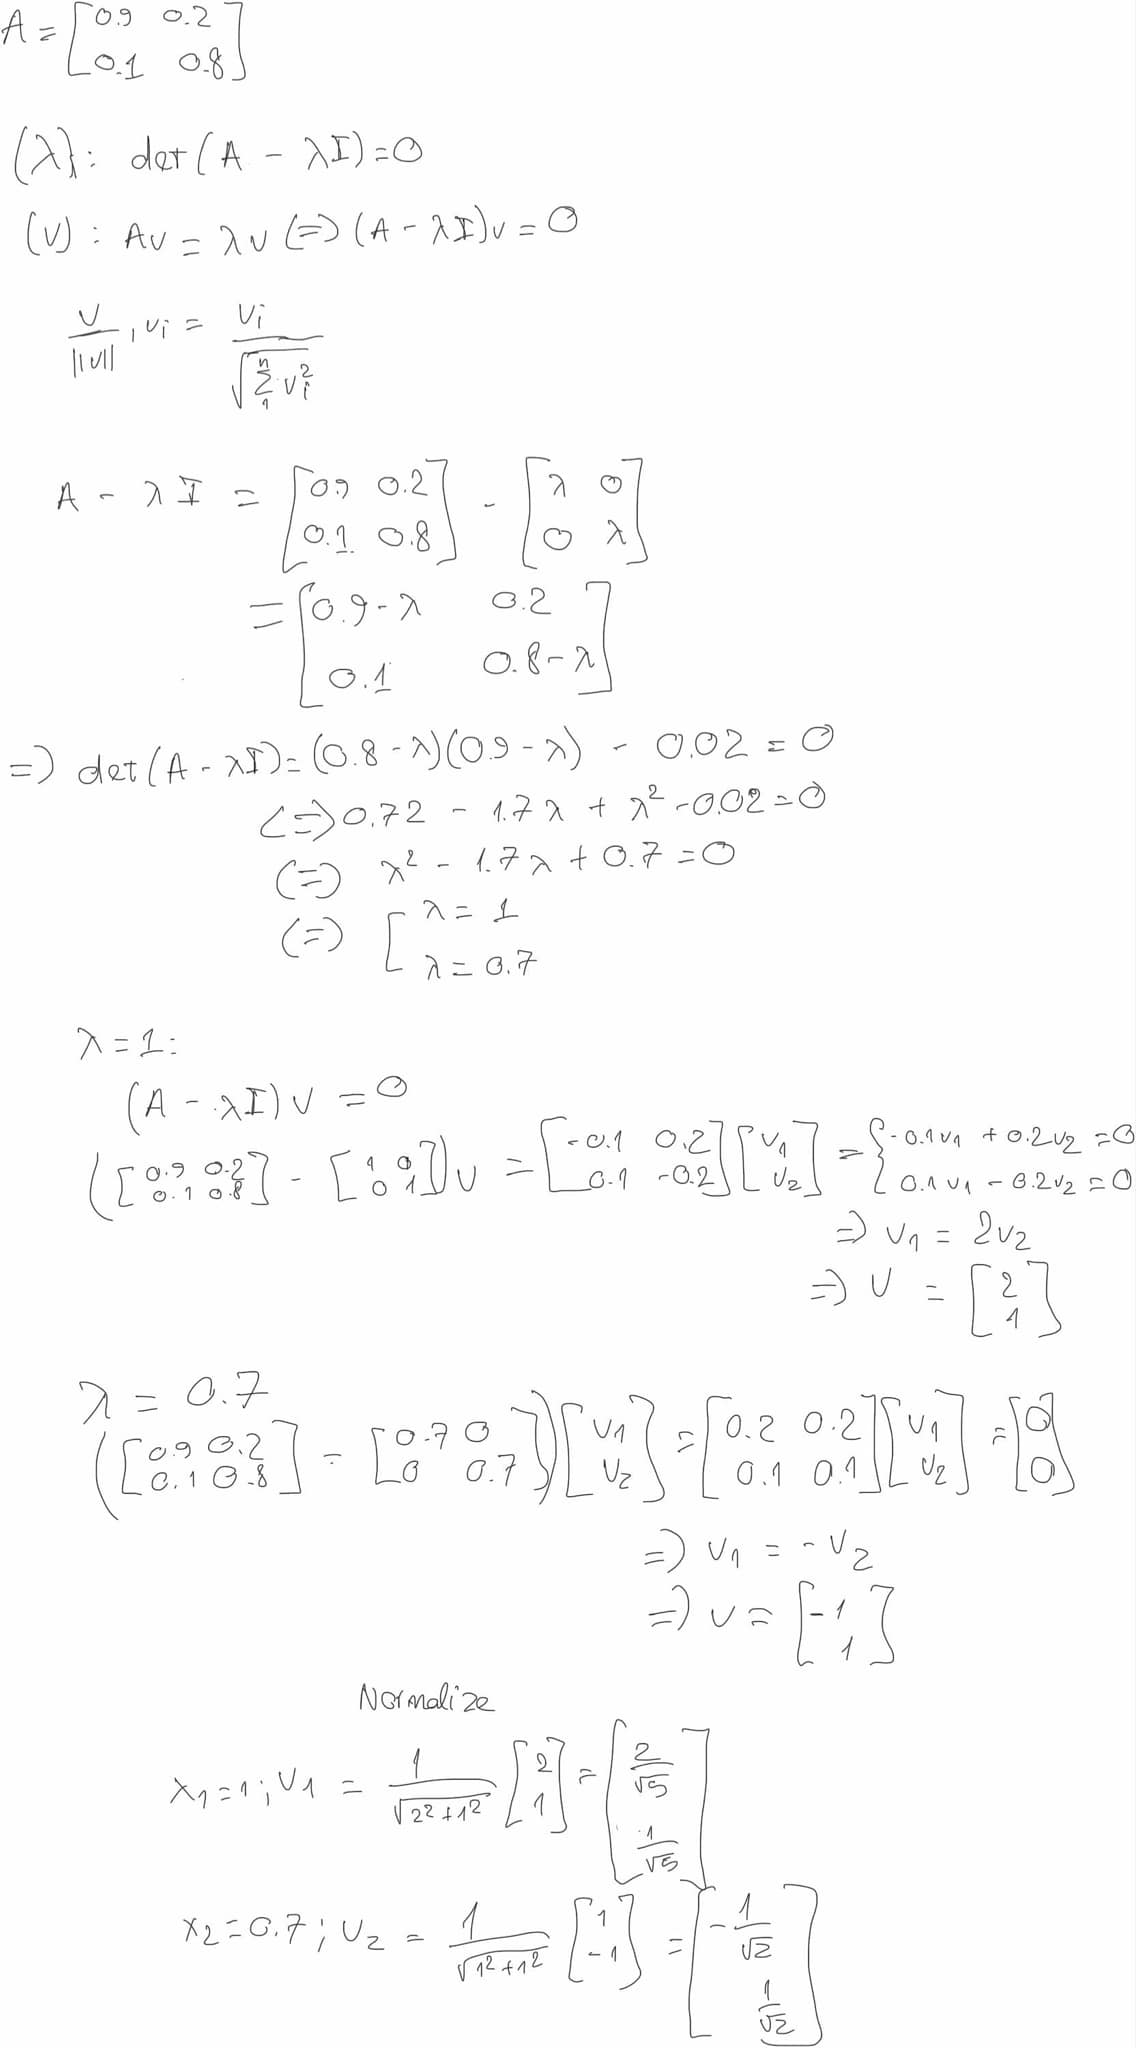 A = [0.9 0.2
0.1 0.8]
(λ}: det(A - λI)=0
(v): Av = λv (=) (A - λI)v = 0
v/||v||, vi = vi/√(Σ_1^n vi²)
A - λI = [0.9 0.2; 0.1 0.8] - [λ 0; 0 λ]
= [0.9-λ 0.2; 0.1 0.8-λ]
=) det(A - λI) = (0.8-λ)(0.9-λ) - 0.02 = 0
<=> 0.72 - 1.7λ + λ² - 0.02 = 0
(=) λ² - 1.7λ + 0.7 = 0
(=) [ λ = 1
λ = 0.7
λ = 1:
(A - λI)v = 0
([0.9 0.2; 0.1 0.8] - [1 0; 0 1])v = [-0.1 0.2; 0.1 -0.2][v1; v2] = { -0.1v1 + 0.2v2 = 0
0.1v1 - 0.2v2 = 0
=) v1 = 2v2
=) v = [2; 1]
λ = 0.7
([0.9 0.2; 0.1 0.8] - [0.7 0; 0 0.7])[v1; v2] = [0.2 0.2; 0.1 0.1][v1; v2] = [0; 0]
=) v1 = -v2
=) v = [-1; 1]
Normalize
x1 = 1; v1 = 1/√(2²+1²) [2; 1] = [2/√5; 1/√5]
x2 = 0.7; v2 = 1/√(1²+1²) [1; -1] = [-1/√2; 1/√2]